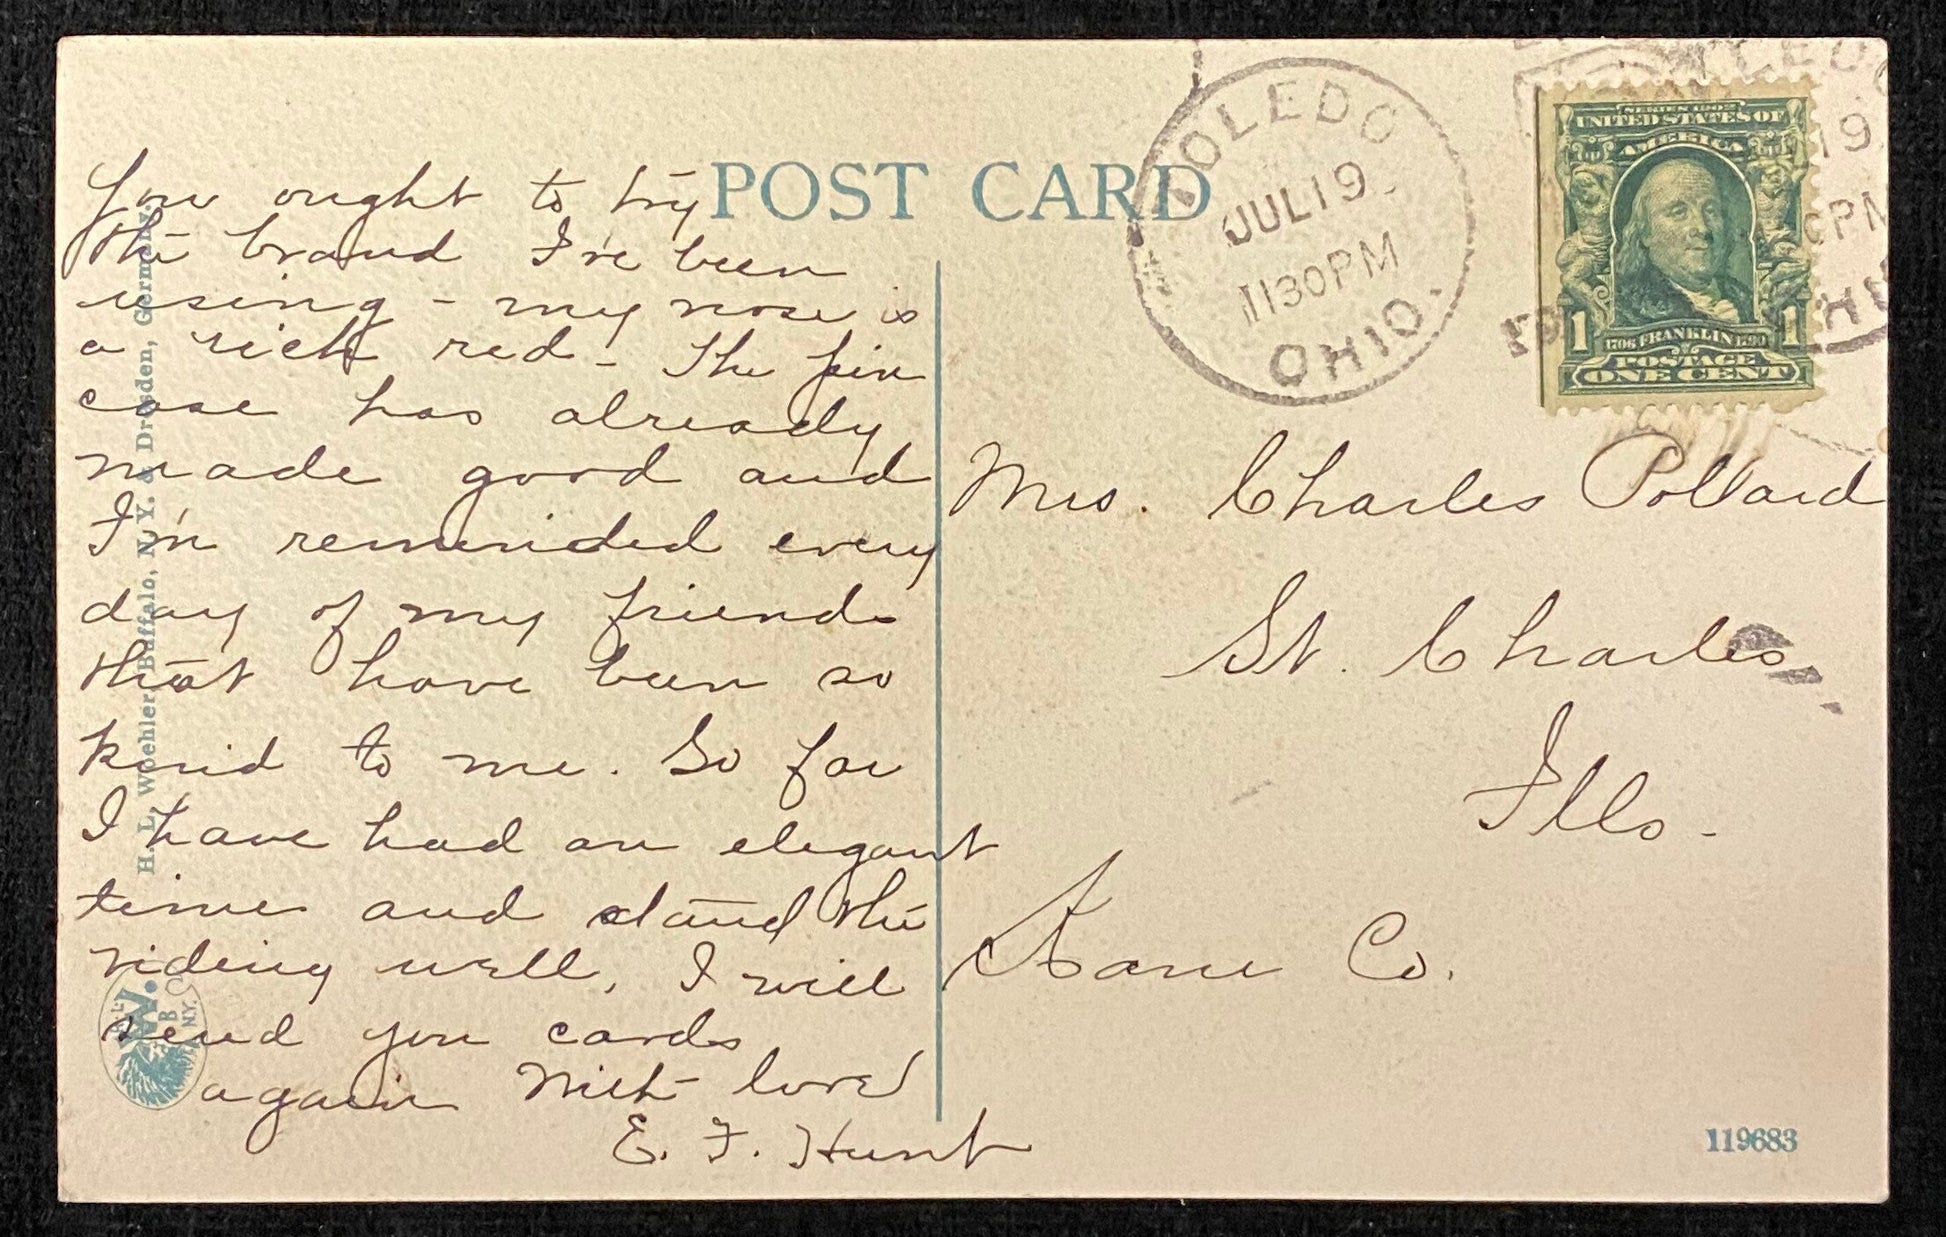 POST CARD
TOLEDO
JUL 19
1130PM
OHIO.
SERIES 1902
UNITED STATES OF
AMERICA
1706 FRANKLIN 1790
1 1
POSTAGE
ONE CENT
You ought to try
the brand I've been
using - my nose is
a rich red - The pin
case has already
made good and
I'm reminded every
day of my friends
that have been so
kind to me. So far
I have had an elegant
time and stand the
riding well, I will
send you cards
again With love
E. F. Hunt
Mrs. Charles Pollard
St. Charles
Ills-
Kane Co.
H. L. Woehler, Buffalo, N. Y. & Dresden, Germany.
119683